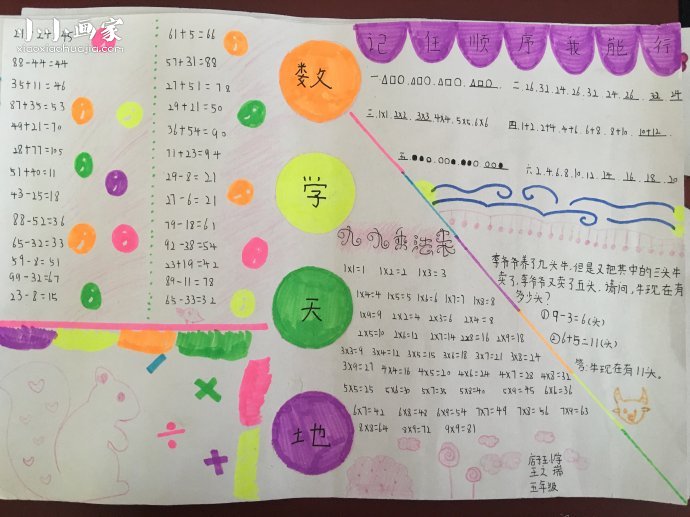 小小画家
xiaoxiaohuajia.com
21+24=45
88-44=44
35+11=46
87+35=53
49+21=70
28+77=105
51+40=11
43-25=18
88-52=36
65-32=33
59-8=51
99-32=67
23-8=15
61+5=66
57+31=88
27+51=78
29+21=50
36+54=90
71+23=94
29-8=21
27-6=21
79-18=61
92-38=54
23+19=42
89-11=78
65-33=32
数
学
天
地
记住顺序我能行
一.△□○.△□○.△□○.△□○.
二.26.32.24.26.32.24.26.32.24
三.1x1.2x2.3x3.4x4.5x5.6x6
四.1+2.2+4.4+6.6+8.8+10.10+12.
五.●●○.○○●.●●○.○○●
六.2.4.6.8.10.12.14.16.18.20
九九乘法表
1x1=1 1x2=2 1x3=3
1x4=4 1x5=5 1x6=6 1x7=7 1x8=8
1x9=9 2x2=4 2x3=6 2x4=8
2x5=10 2x6=12 2x7=14 2x8=16 2x9=18
3x3=9 3x4=12 3x5=15 3x6=18 3x7=21 3x8=24
3x9=27 4x4=16 4x5=20 4x6=24 4x7=28 4x8=32
5x5=25 5x6=30 5x7=35 5x8=40 5x9=45 6x6=36
6x7=42 6x8=48 6x9=54 7x7=49 7x8=56 7x9=63
8x8=64 8x9=72 9x9=81
李爷爷养了九头牛,但是又把其中的三头牛
卖了,李爷爷又卖了五头,请问,牛现在有
多少头?
①9-3=6(头)
②6+5=11(头)
答:牛现在有11头。
小学
五年级